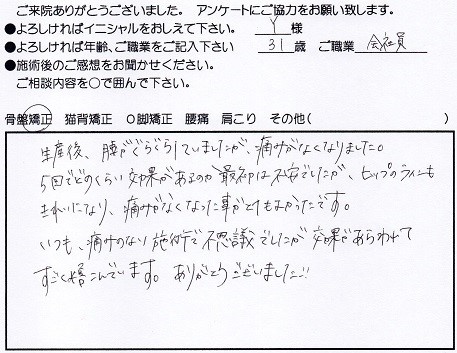 ご来院ありがとうございました。 アンケートにご協力をお願い致します。
●よろしければイニシャルをおしえて下さい。 Y 様
●よろしければ年齢、ご職業をご記入下さい 31 歳 ご職業 会社員
●施術後のご感想をお聞かせください。
ご相談内容を○で囲んで下さい。
骨盤矯正 猫背矯正 O脚矯正 腰痛 肩こり その他( )
生産後、腰がぐらぐらしていましたが、痛みがなくなりました。
5回でどのくらい効果があるのか最初は不安でしたが、ヒップのラインも
きれいになり、痛みがなくなった事がとてもよかったです。
いつも、痛みのない施術で不思議でしたが効果であらわれて
すごく喜こんでいます。ありがとうございました!!